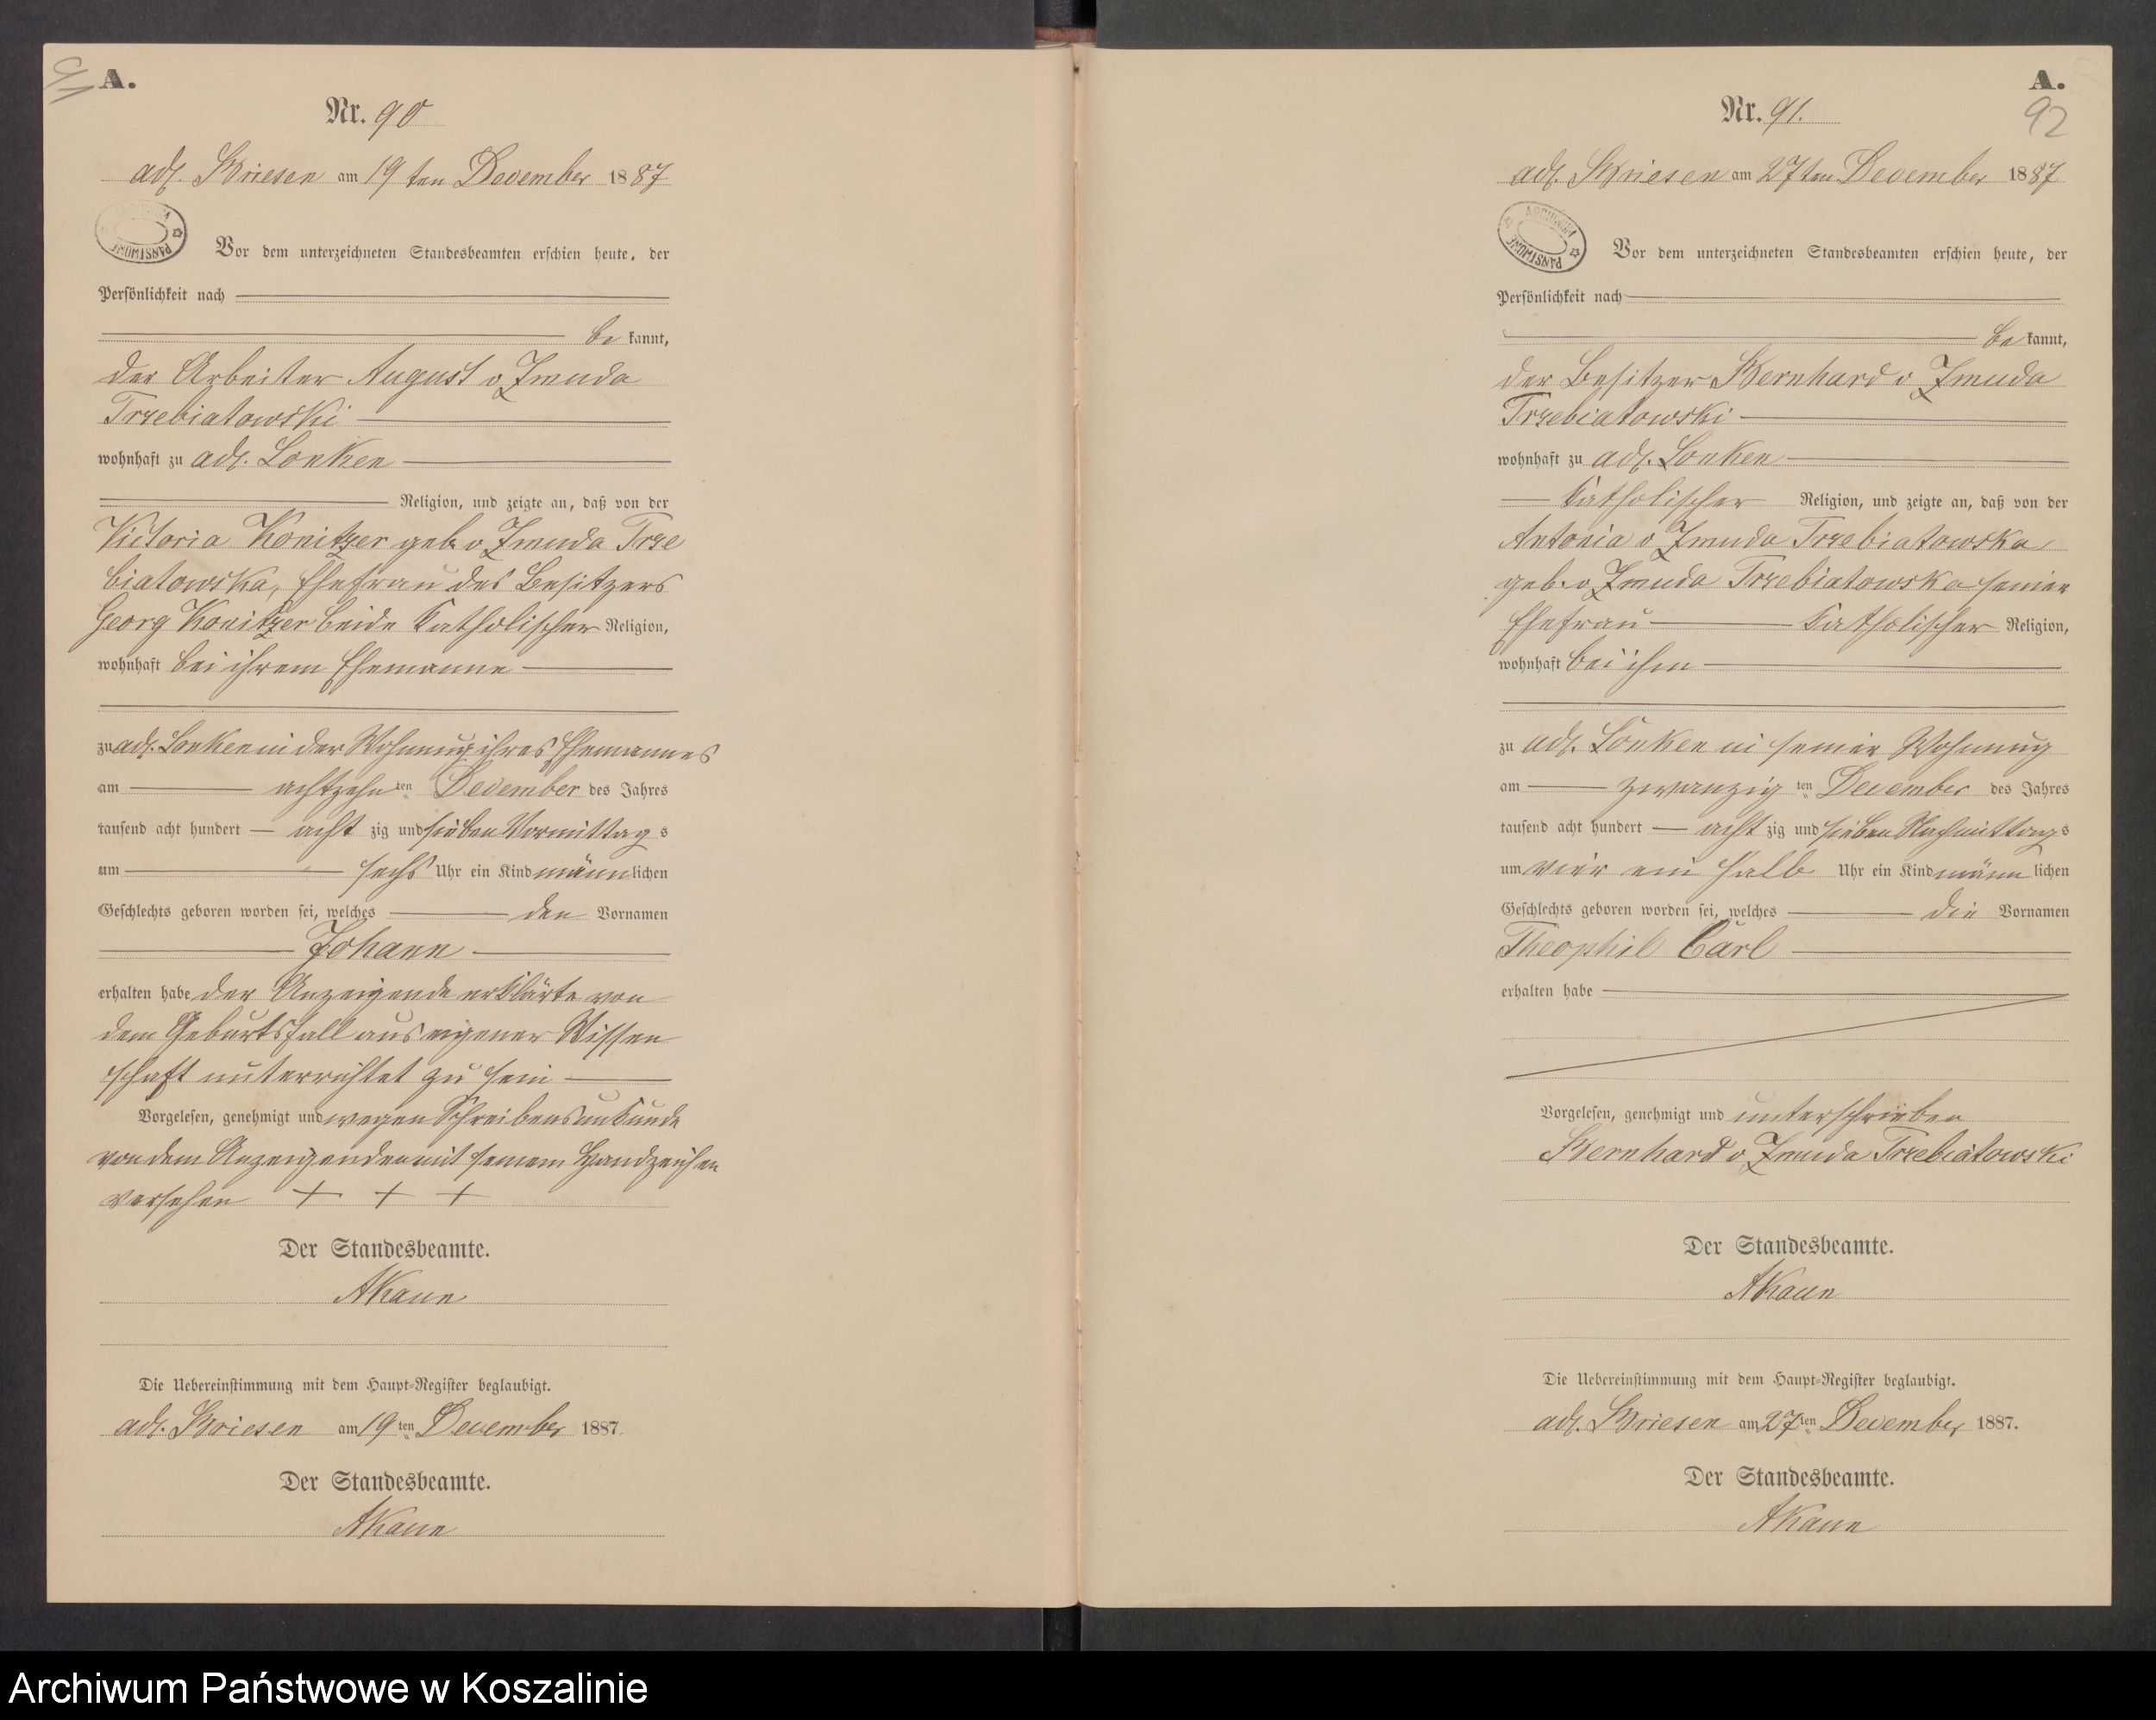 A.
Nr. 90
adl. Briesen am 19 ten December 1887
ARCHIWUM PAŃSTWOWE
Vor dem unterzeichneten Standesbeamten erschien heute, der
Persönlichkeit nach
be kannt,
der Arbeiter August v Zmuda
Trzebiatowski
wohnhaft zu adl. Lonken
Religion, und zeigte an, daß von der
Victoria Konitzer geb v Zmuda Trze
biatowska, Ehefrau des Besitzers
Georg Konitzer beide katholischer Religion,
wohnhaft bei ihrem Ehemanne
zu adl. Lonken in der Wohnung ihres Ehemannes
am achtzehn ten December des Jahres
tausend acht hundert acht zig und sieben Vormittag s
um sechs Uhr ein Kind männ lichen
Geschlechts geboren worden sei, welches den Vornamen
Johann
erhalten habe der Anzeigende erklärte von
dem Geburtsfall aus eigener Wissen
schaft unterrichtet zu sein
Vorgelesen, genehmigt und wegen Schreibensunkunde
von dem Anzeigenden mit seinem Handzeichen
versehen + + +
Der Standesbeamte.
AKaun
Die Uebereinstimmung mit dem Haupt-Register beglaubigt.
adl. Briesen am 19 ten December 1887.
Der Standesbeamte.
AKaun
A.
92
Nr. 91.
adl. Briesen am 27 ten December 1887
ARCHIWUM PAŃSTWOWE
Vor dem unterzeichneten Standesbeamten erschien heute, der
Persönlichkeit nach
be kannt,
der Besitzer Bernhard v Zmuda
Trzebiatowski
wohnhaft zu adl. Lonken
katholischer Religion, und zeigte an, daß von der
Antonia v Zmuda Trzebiatowska
geb. v Zmuda Trzebiatowska seiner
Ehefrau katholischer Religion,
wohnhaft bei ihm
zu adl. Lonken in seiner Wohnung
am zwanzig ten December des Jahres
tausend acht hundert acht zig und sieben Nachmittag s
um vier ein halb Uhr ein Kind männ lichen
Geschlechts geboren worden sei, welches die Vornamen
Theophil Carl
erhalten habe
Vorgelesen, genehmigt und unterschrieben
Bernhard v Zmuda Trzebiatowski
Der Standesbeamte.
AKaun
Die Uebereinstimmung mit dem Haupt-Register beglaubigt.
adl. Briesen am 27 ten December 1887.
Der Standesbeamte.
AKaun
Archiwum Państwowe w Koszalinie